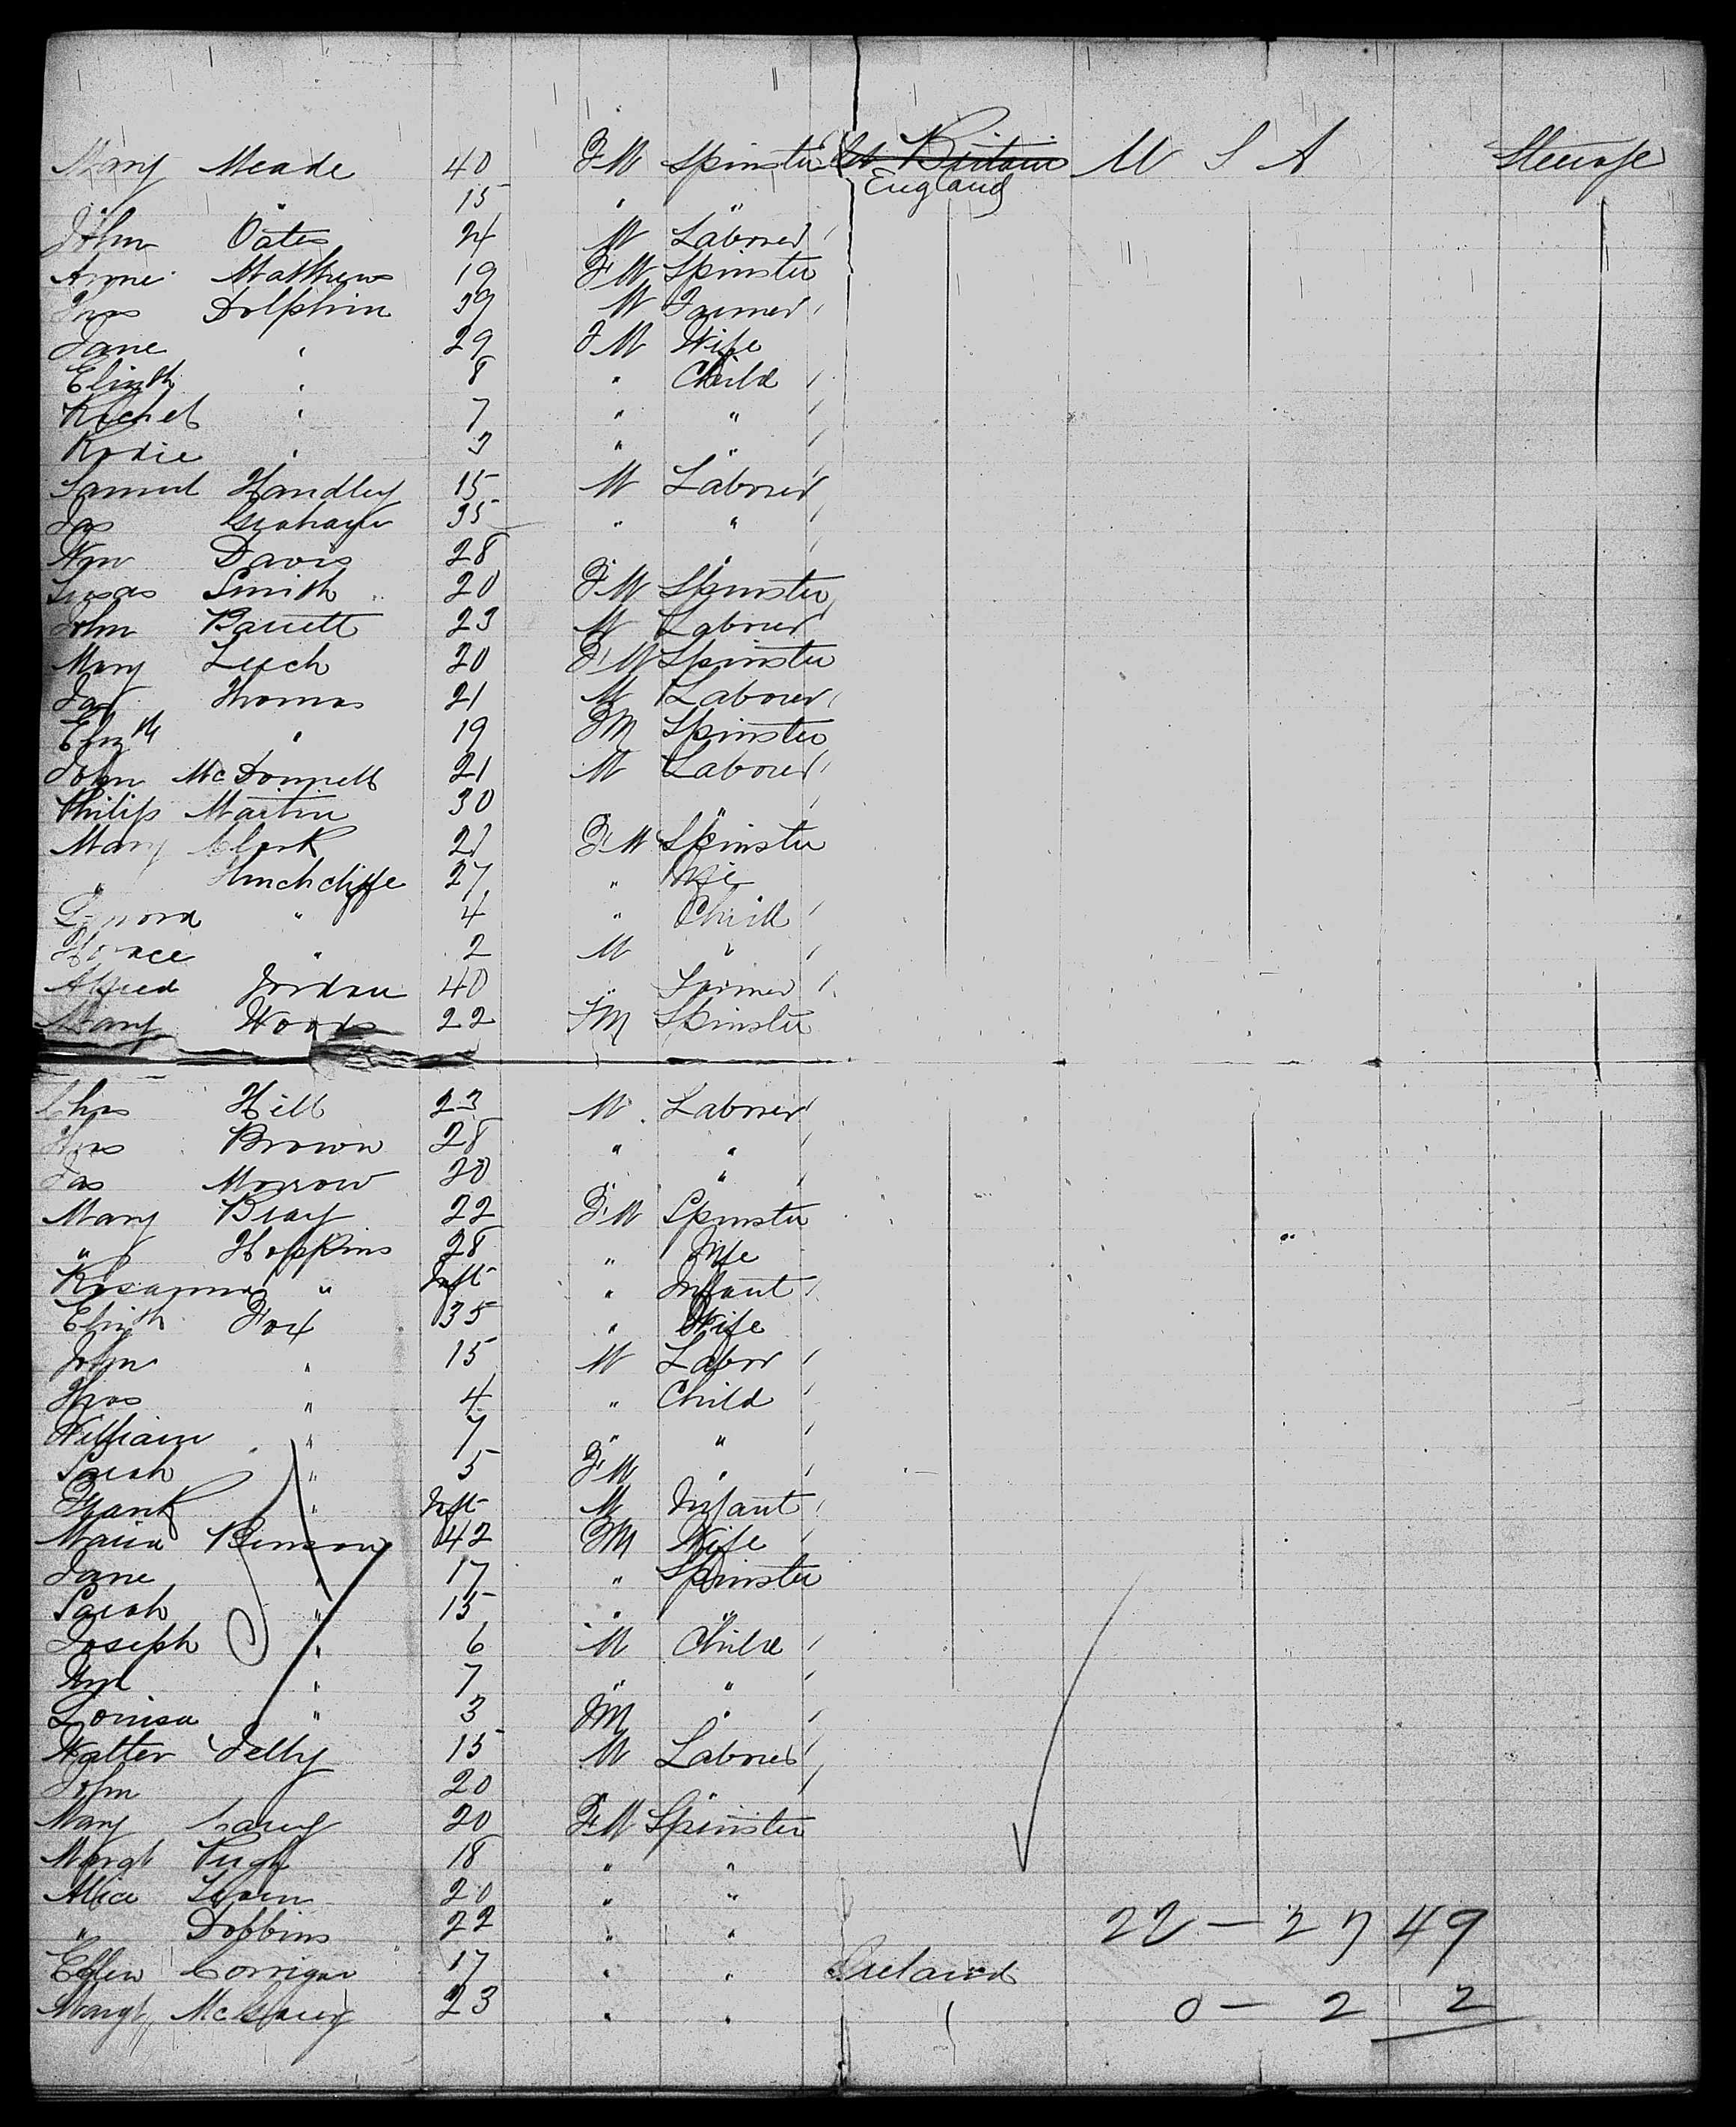 Mary Meade 40 FM Spinster Gt Britain U S A Steerage
" " 15 " " England
John Oates 24 M Laborer
Anne Matthews 19 FM Spinster
Thos Dolphin 39 M Farmer
Jane " 29 FM Wife
Elizth " 8 " Child
Rachel " 7 " "
Rodie " 3 " "
Samuel Handley 15 M Laborer
Jas Graham 35 " "
Wm Davis 28 "
Susas Smith 20 FM Spinster
John Barrett 23 M Laborer
Mary Leech 20 FM Spinster
Jas Thomas 21 M Laborer
Elizth " 19 FM Spinster
John McDonnell 21 M Laborer
Philip Martin 30 "
Mary Clark 21 FM Spinster
" Hinchcliffe 27 " Wife
" 4 " Child
Horace " 2 M "
Alfred Jordan 40 " Farmer
Mary Woods 22 FM Spinster
Chas Hill 23 M Laborer
Thos Brown 28 " "
Jas Morrow 20 " "
Mary Bray 22 FM Spinster
" Hopkins 28 " Wife
Rosanna " Inft " Infant
Elizth Fox 35 " Wife
John " 15 M Labor
Thos " 4 " Child
William " 7 " "
Sarah " 5 FM "
Frank " Inft M Infant
Maria Benson 42 FM Wife
Jane " 17 " Spinster
Sarah " 15 " "
Joseph " 6 M Child
" 7 " "
Louisa " 3 FM "
Walter Jelly 15 M Laborer
John 20 "
Mary Carey 20 FM Spinster
Margt Pugh 18 " "
Alice 20 " "
" Dobbins 22 " " 22 — 27 49
Ellen Corrigan 17 " " Ireland
Margt 23 " " 0 — 2 2